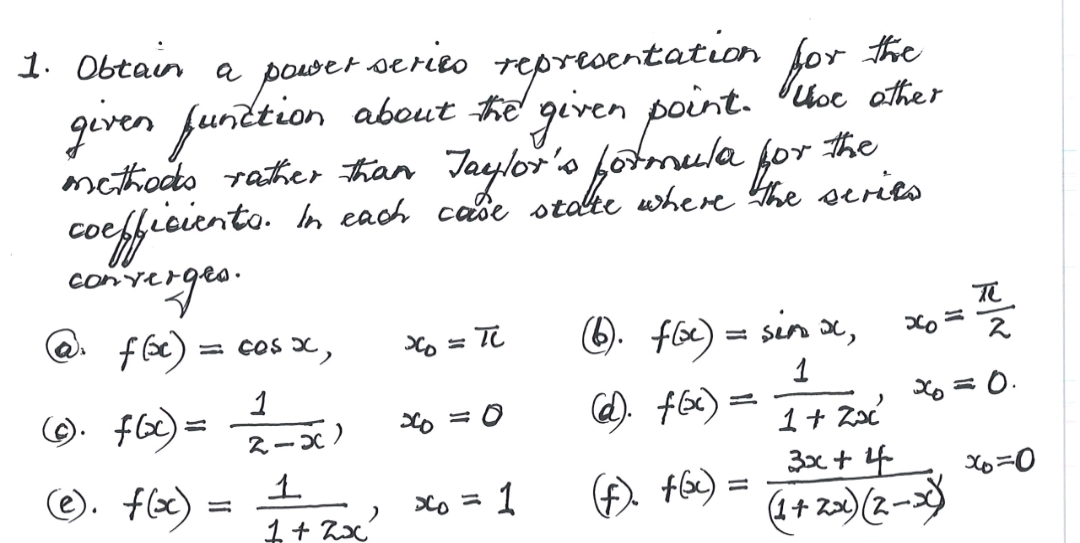 1. Obtain a power series representation for the
given function about the given point. Use other
methods rather than Taylor's formula for the
coefficients. In each case state where the series
converges.
(a). f(x) = cos x, x₀ = π (b). f(x) = sin x, x₀ = π/2
(c). f(x) = 1/(2-x), x₀ = 0 (d). f(x) = 1/(1+2x), x₀ = 0.
(e). f(x) = 1/(1+2x), x₀ = 1 (f). f(x) = (3x+4)/((1+2x)(2-x)), x₀=0